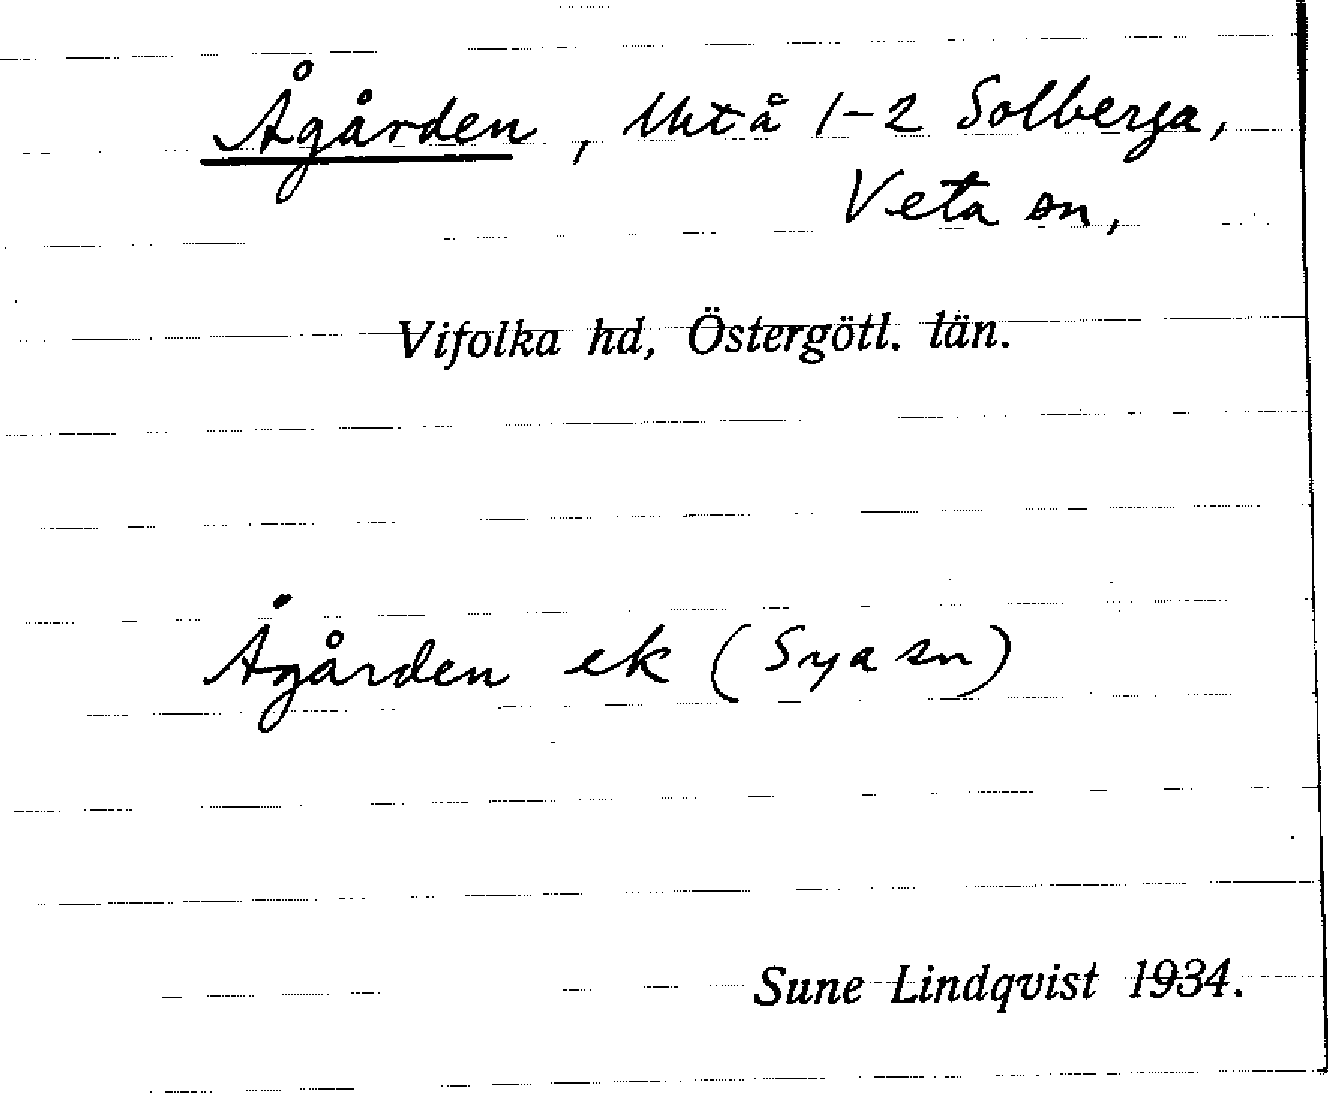 Ågården, Utå 1-2 Solberga,
Veta sn,
Vifolka hd, Östergötl. län.
Ågården ek (Sya sn)
Sune Lindqvist 1934.